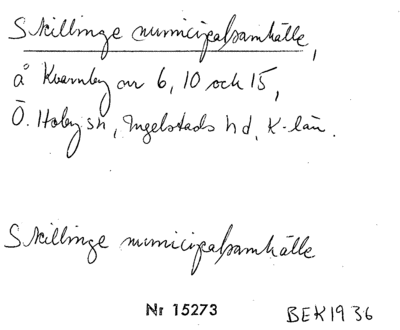 Skillinge municipalsamhälle,
å Kvarnby nr 6, 10 och 15,
Ö. Hoby sn, Ingelstads hd, K-län.
Skillinge municipalsamhälle
Nr 15273
BEK 1936